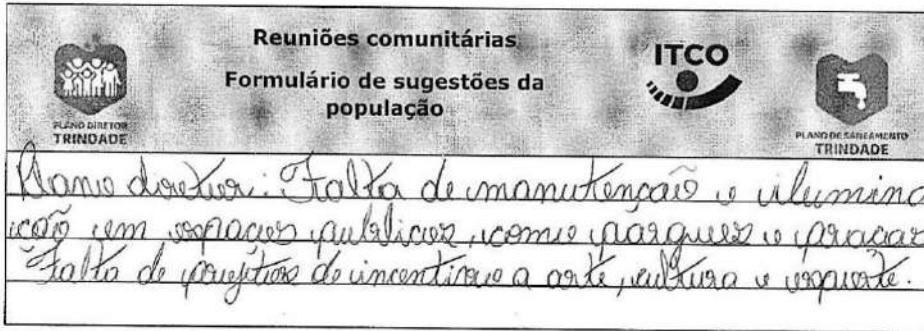 Reuniões comunitárias
Formulário de sugestões da
população
PLANO DIRETOR
TRINDADE
ITCO
PLANO DE SANEAMENTO
TRINDADE
Plano diretor: Falta de manutenção e ilumina
ção em espaços publicos, como parques e praças
Falta de projetos de incentivo a arte, cultura e esporte.